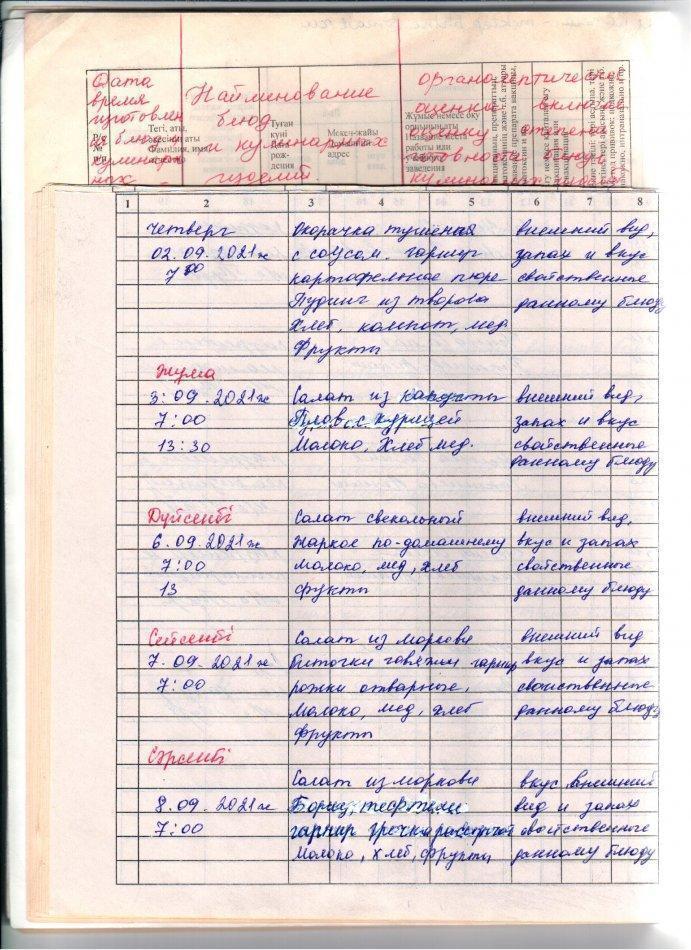 Дата
время
изготовлен
Наименование
блюд
и кулинарных
изделий
органолептическ
оценка, включая
оценку степени
готовности блюд
кулинарных
Р/с
№
п/п
Тегі, аты,
әкесінің аты
Фамилия, имя,
отчество
Туған
күні
Дата
рож-
дения
Мекен-жайы
Домашний
адрес
Жұмыс немесе оқу
орнының аты
Название места
работы или
учебного
заведения
1 2 3 4 5 6 7 8
Четверг Окорачка тушеная внешний вид,
02.09.2021ж с соусом. гарнир запах и вкус
7 00 картофельное пюре свойственное
Пудинг из творога данному блюду
Хлеб, компот, мед
Фрукты
Жұма
3:09.2021ж Салат из капусты внешний вид,
7:00 Плов с курицей запах и вкус
13:30 Молоко, Хлеб мед. свойственное
данному блюду
Дүйсенбі Салат свекольный внешний вид,
6.09.2021ж Жаркое по-домашнему вкус и запах
7:00 молоко, мед, хлеб свойственное
13 фукты данному блюду
Сейсенбі Салат из моркови внешний вид
7.09.2021ж биточки говяжьи гарнир вкус и запах
7:00 рожки отварные, свойственные
Молоко, мед, хлеб данному блюду
фрукты
Сәрсенбі
Салат из моркови вкус внешний
8.09.2021ж Борщ, тефтели вид и запах
7:00 гарнир гречка рассыпчатой свойственное
Молоко, хлеб, фрукты данному блюду